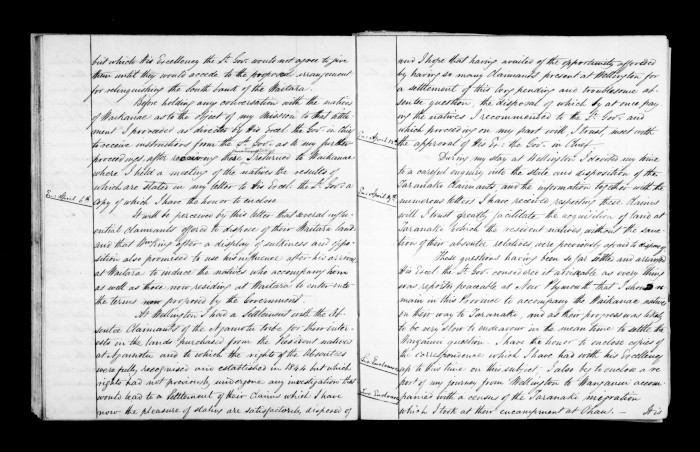 but which His Excellency the Lt. Gov. would not agree to give
them until they would accede to the proposed arrangement
for relinquishing the South bank of the Waitara.
Before holding any conversation with the natives
of Waikanae as to the object of my mission to that settle-
ment I proceeded as directed by His Excel. the Gov. in Chief
to receive instructions from the Lt. Gov. as to my further
proceedings after receiving these I returned to Waikanae
where I held a meeting of the natives the results of
which are stated in my letter to His Excel. the Lt. Gov. a
copy of which I have the honor to enclose
April 6th
It will be perceived by this letter that several influ-
ential claimants offered to dispose of their Waitara land
and that Wm King after a display of sullenness and oppo-
sition also promised to use his influence after his arrival
at Waitara to induce the natives who accompany him
as well as those now residing at Waitara to enter into
the terms now proposed by the Government.
At Wellington I had a Settlement with the Ab-
sentee Claimants of the Ngamotu tribe for their inter-
ests in the lands purchased from the Resident natives
at Ngamotu and to which the rights of the Absentees
were fully recognised and established in 1844 but which
rights had not previously undergone any investigation that
would lead to a settlement of their claims which I have
now the pleasure of stating are satisfactorily disposed of
and I hope that having availed of the opportunity afforded
by having so many Claimants present at Wellington for
a settlement of this long pending and troublesome ab-
sentee question, the disposal of which by at once pay-
ing the natives I recommended to the Lt. Gov. and
which proceeding on my part will I trust meet with
the approval of His Ex. the Gov. in Chief.
During my stay at Wellington I devoted my time
to a careful enquiry into the state and disposition of the
Taranaki Claimants, and the information together with the
numerous letters I have received respecting these Claims
will I trust greatly facilitate the acquisition of land at
Taranaki which the resident natives, without the sanc-
tion of their absentee relatives were previously afraid to dispose of
These questions having been so far settled and arranged
His Excel. the Lt. Gov. considered it advisable as every thing
was reported peaceable at New Plymouth that I should re-
main in this Province to accompany the Waikanae natives
on their way to Taranaki, and as their progress was likely
to be very slow to endeavour in the mean time to settle the
Wanganui question. I have the honor to enclose copies of
the correspondence which I have had with His Excellency
up to this time on this subject, I also beg to enclose a re-
port of my journey from Wellington to Wanganui accom-
panied with a census of the Taranaki migration
which I took at their encampment at Ohau. —
It is